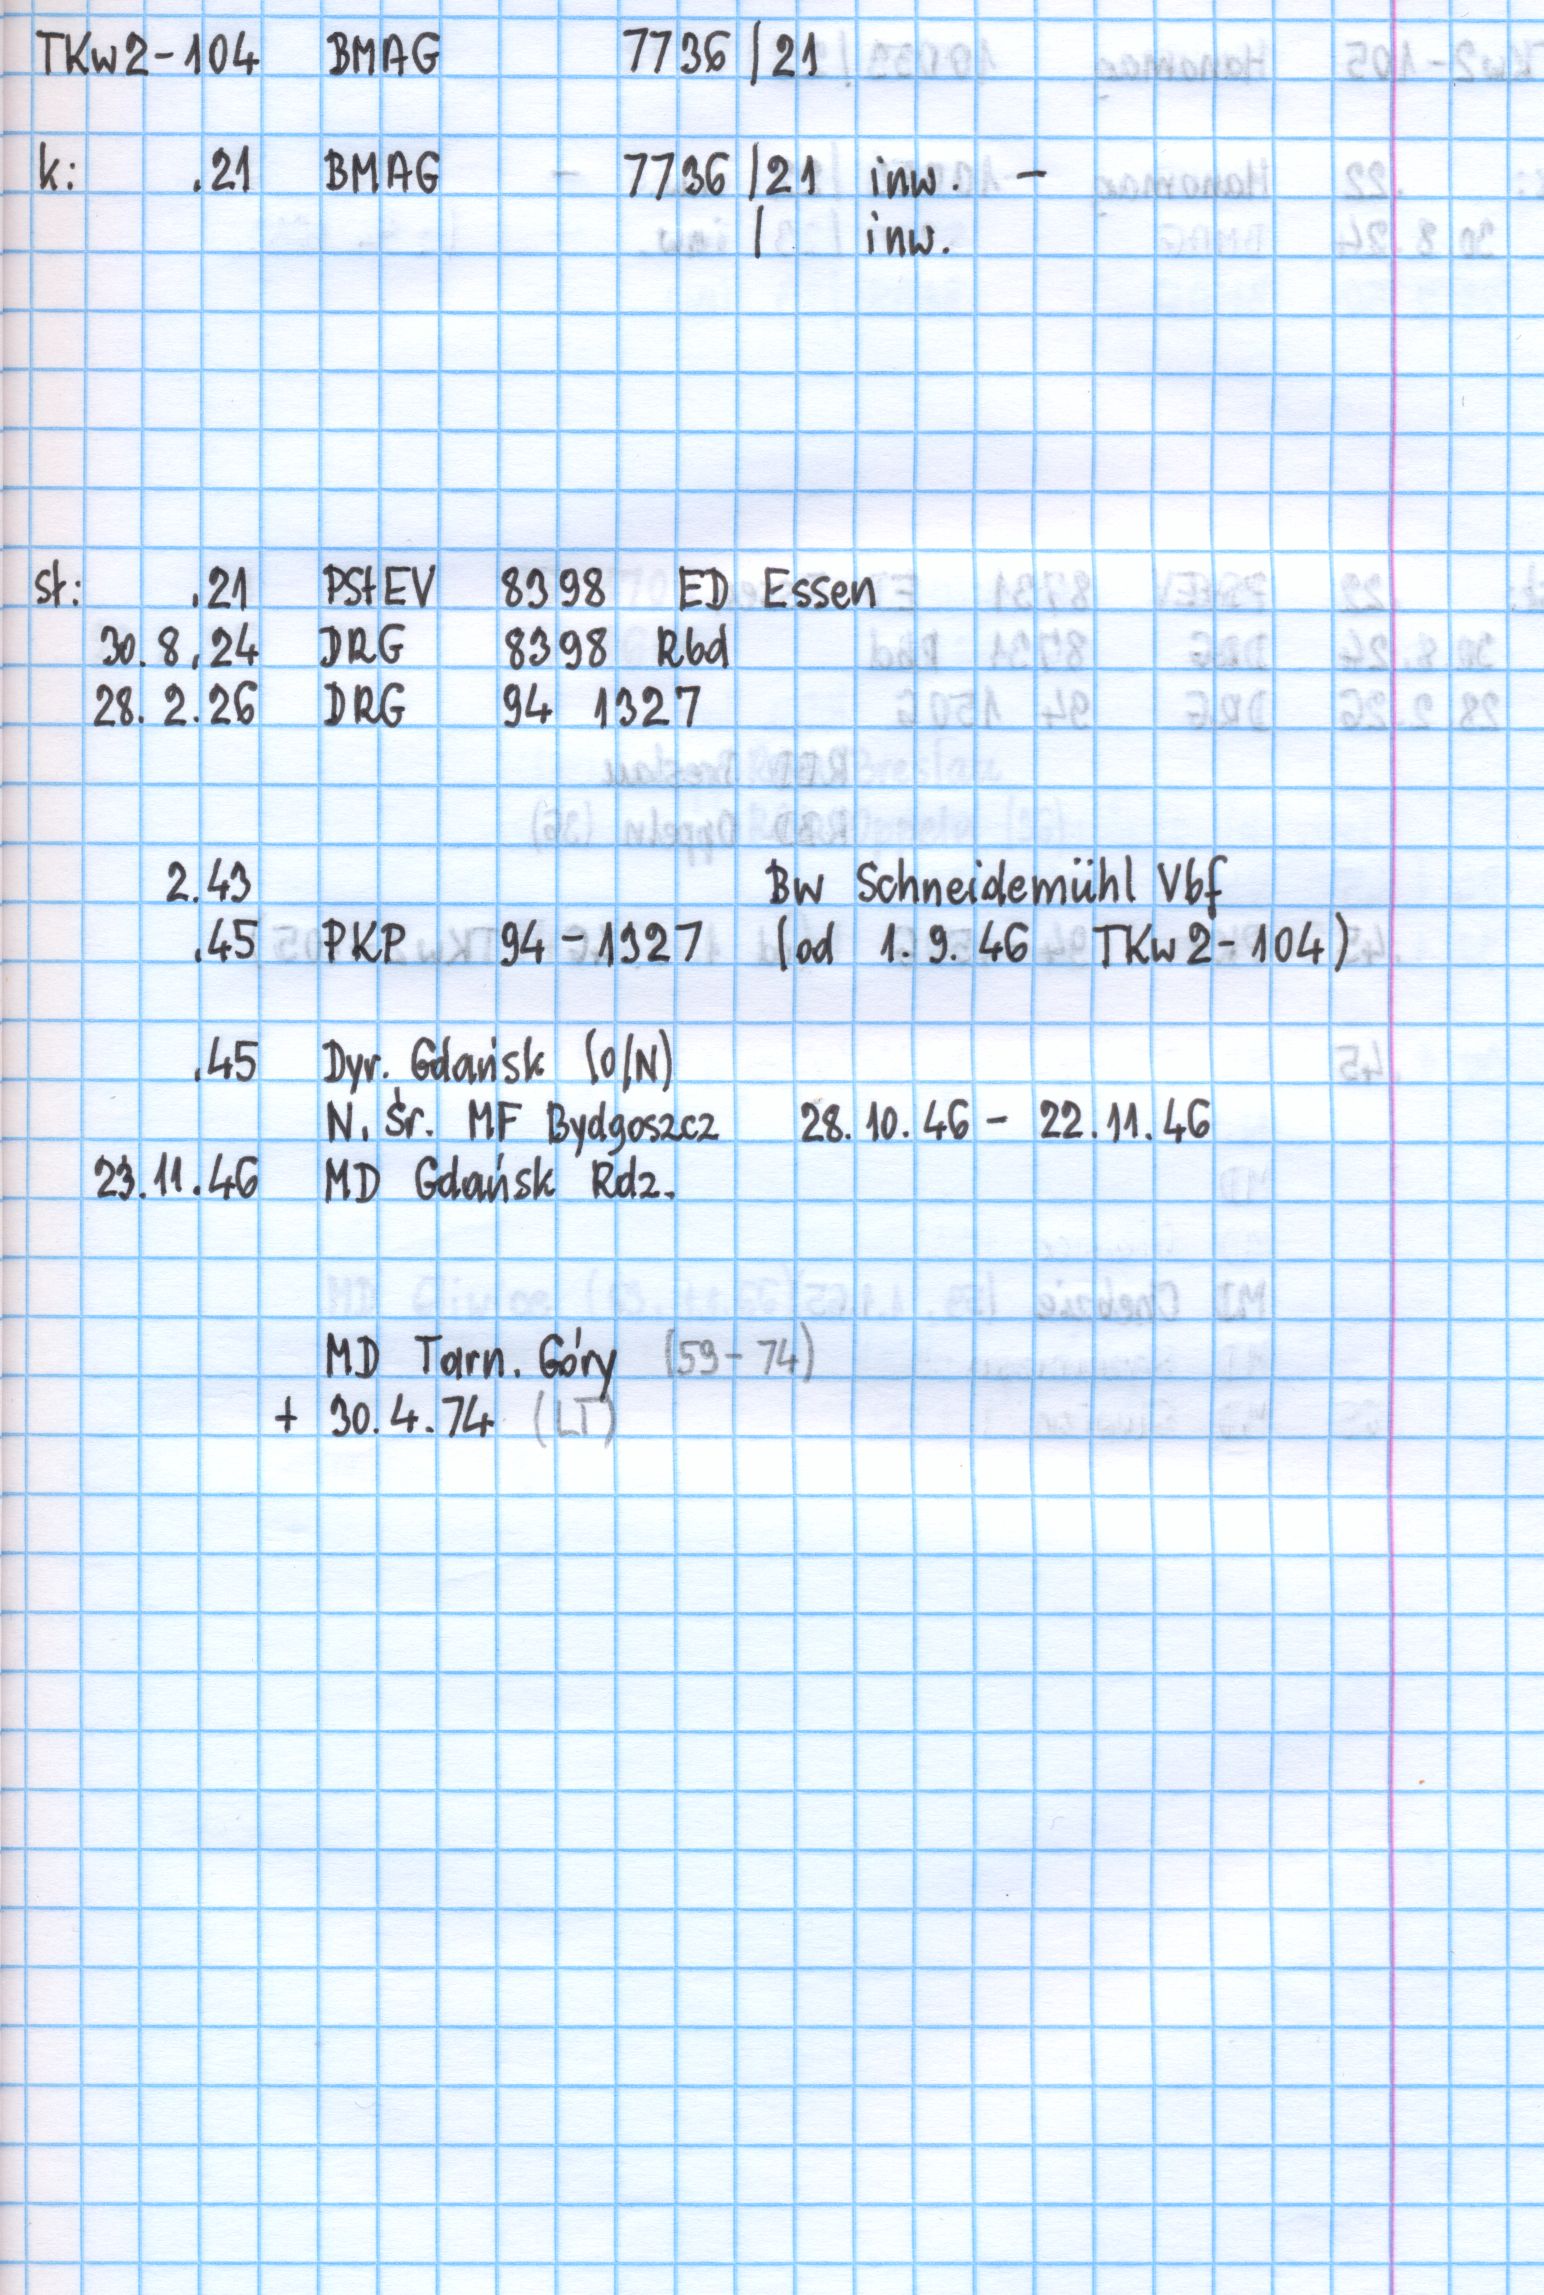 TKw2-104 BMAG 7736/21
k: .21 BMAG - 7736/21 inw. -
/ inw.
st: .21 PStEV 8398 ED Essen
30.8.24 DRG 8398 Rbd
28.2.26 DRG 94 1327
2.43 Bw Schneidemühl Vbf
.45 PKP 94-1327 (od 1.9.46 TKw2-104)
.45 Dyr. Gdańsk (O/N)
N. Śr. MF Bydgoszcz 28.10.46 - 22.11.46
23.11.46 MD Gdańsk Rdz.
MD Tarn. Góry (59-74)
+ 30.4.74 (LT)